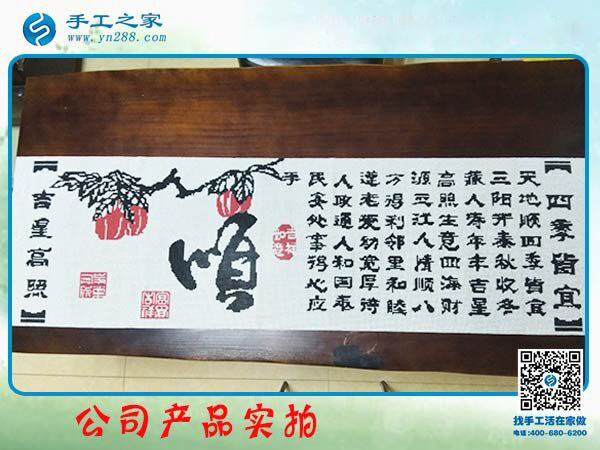 手工之家
www.yn288.com
【四季皆宜】
天地顺四季皆宜
三阳开泰秋收冬
藏人寿年丰吉星
高照生意四海财
源三江人情顺八
方得利邻里和睦
遵老爱幼宽厚待
人政通人和国泰
民安处事得心应
手
吉祥如意
順
【吉星高照】
公司产品实拍
找手工活在家做
电话:400-680-6200